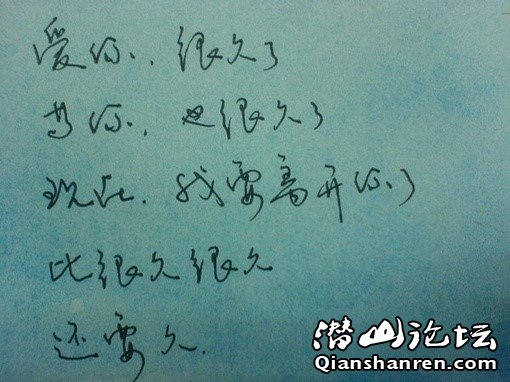 爱你.很久了
等你.也很久了
现在.我要离开你了
比很久很久
还要久.
潜山论坛
Qianshanren.com